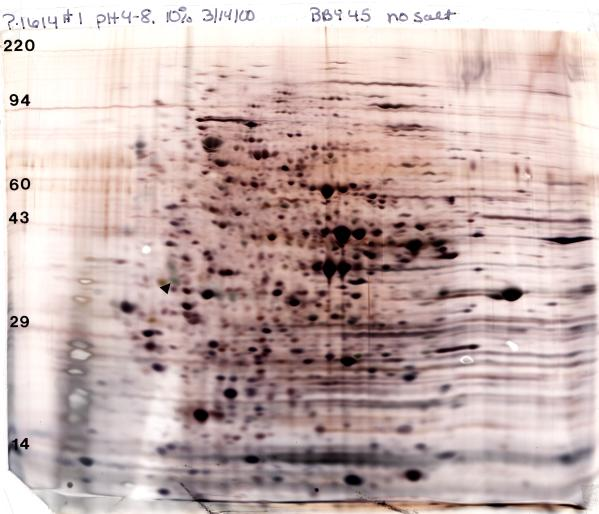 P.1614 #1 pH 4-8. 10% 3/14/00 BB445 no salt
220
94
60
43
29
14